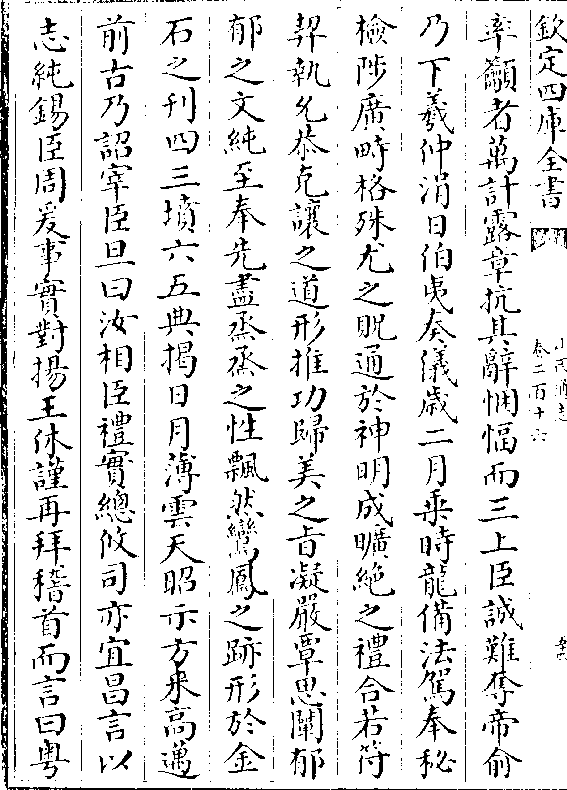 欽定四庫全書
卷二百十六
率籲者萬計露章抗其辭悃愊而三上臣誠難奪帝俞
乃下羲仲涓日伯夷奏儀歲二月乗時龍備法駕奉秘
檢陟廣畤格殊尤之貺通於神明成曠絶之禮合若符
契執允恭克讓之道形推功歸美之旨凝嚴覃思闡郁
郁之文純至奉先盡烝烝之性飄然鸞鳳之跡形於金
石之刋四三墳六五典揭日月薄雲天昭示方来高邁
前古乃詔宰臣旦曰汝相臣禮實總攸司亦宜昌言以
志純錫臣周爰事實對揚王休謹再拜稽首而言曰粤